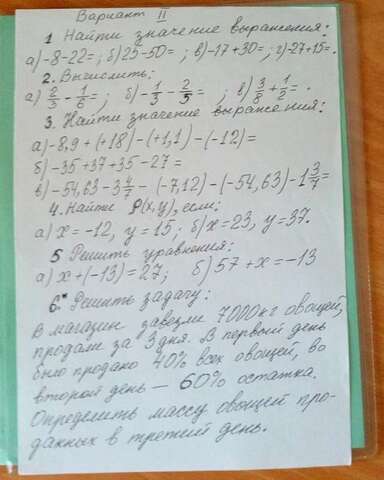 Вариант II
1 Найти значение выражения:
а) -8-22= ; б) 25-50= ; в) -17+30= ; г) -27+15= .
2. Вычислить:
а) 2/3 - 1/6 = ; б) -1/3 - 2/5 = ; в) 3/8 + 1/2 = .
3. Найти значение выражения:
а) -8,9 + (+18) - (+1,1) - (-12) =
б) -35+37+35-27=
в) -54,63 - 3 4/7 - (-7,12) - (-54,63) - 1 3/7 =
4. Найти ρ(x,y), если:
а) x = -12, y = 15; б) x = 23, y = 37.
5 Решить уравнения;
а) x + (-13) = 27; б) 57 + x = -13
6* Решить задачу:
В магазин завезли 7000 кг овощей,
продали за 3 дня. В первый день
было продано 40% всех овощей, во
второй день — 60% остатка.
Определить массу овощей про-
данных в третий день.